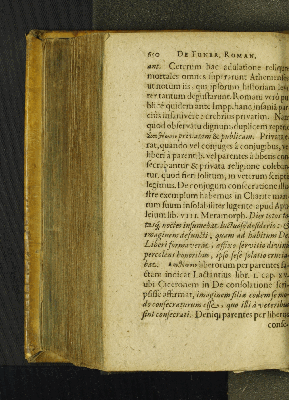 610 DE FUNER. ROMAN.
ant. Ceterum hac adulatione reliquos
mortales omnes superarunt Athenienses
ut notum iis, qui ipsorum historiam
ter tantum degustarunt. Romani verò pu-
blicè quidem ante Impp. hanc insaniã
insanivere crebrius privatim.
quod observatu dignum, duplicem
privatam & publicam. Privata
rat, quando vel conjuges à conjugibus, vel
liberi à parentib. vel parentes à liberis con-
secrabantur & privata religione
tur, quod fieri solitum, in veterum scriptis
legimus. De conjugum consecratione
stre exemplum habemus in Charite mari-
tum suum insolabiliter lugente apud Apu-
leium lib. VIII. Metamorph. Dies totos to-
tasq; noctes insumebat luctuoso desiderio: &
imagines defuncti, quas ad habitum Dei
Liberi formaverat, affixo servitio divinis
percolens honoribus, ipso sese solatio crucia-
bat. liberorum per parentes fa-
ctam indicat Lactantius libr. 1. cap. xv.
ubi Ciceronem in De consolatione scri-
psisse affirmat, imaginem filiæ eodem se modo
consecraturum esse, quo illi à veteribus
sint consecrati. Deniq; parentes per liberos
conse-